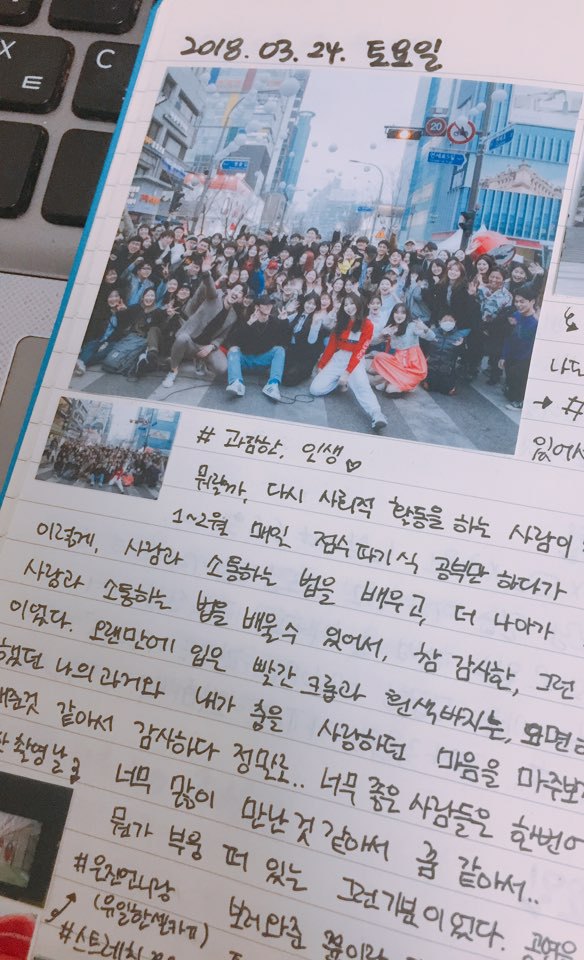 X
ㅌ
C
2018. 03. 24. 토요일
20
# 과람한, 인생♡
나도
→ #
있어서
뭐랄까, 다시 사회적 활동을 하는 사람이
1~2월 매일 점수 따기식 공부만 하다가
이렇게, 사람과 소통하는 법을 배우고, 더 나아가
사랑과 소통하는 법을 배울 수 있어서, 참 감사한, 그런
이었다. 오랜만에 입은 빨간 크롭과 흰색바지는, 요면
했던 나의 과거와 내가 춤을 사랑하던 마음을 마주보
해준것 같아서 감사하다 정말로.. 너무 좋은 사람들은 한번에
촬영날 너무 많이 만난 것 같아서 꿈 같아서..
뭔가 부웅 떠 있는 그런기분이었다.
#우진언니랑 보러와준 공연은
(유일한셀카!!)
#스트레칭